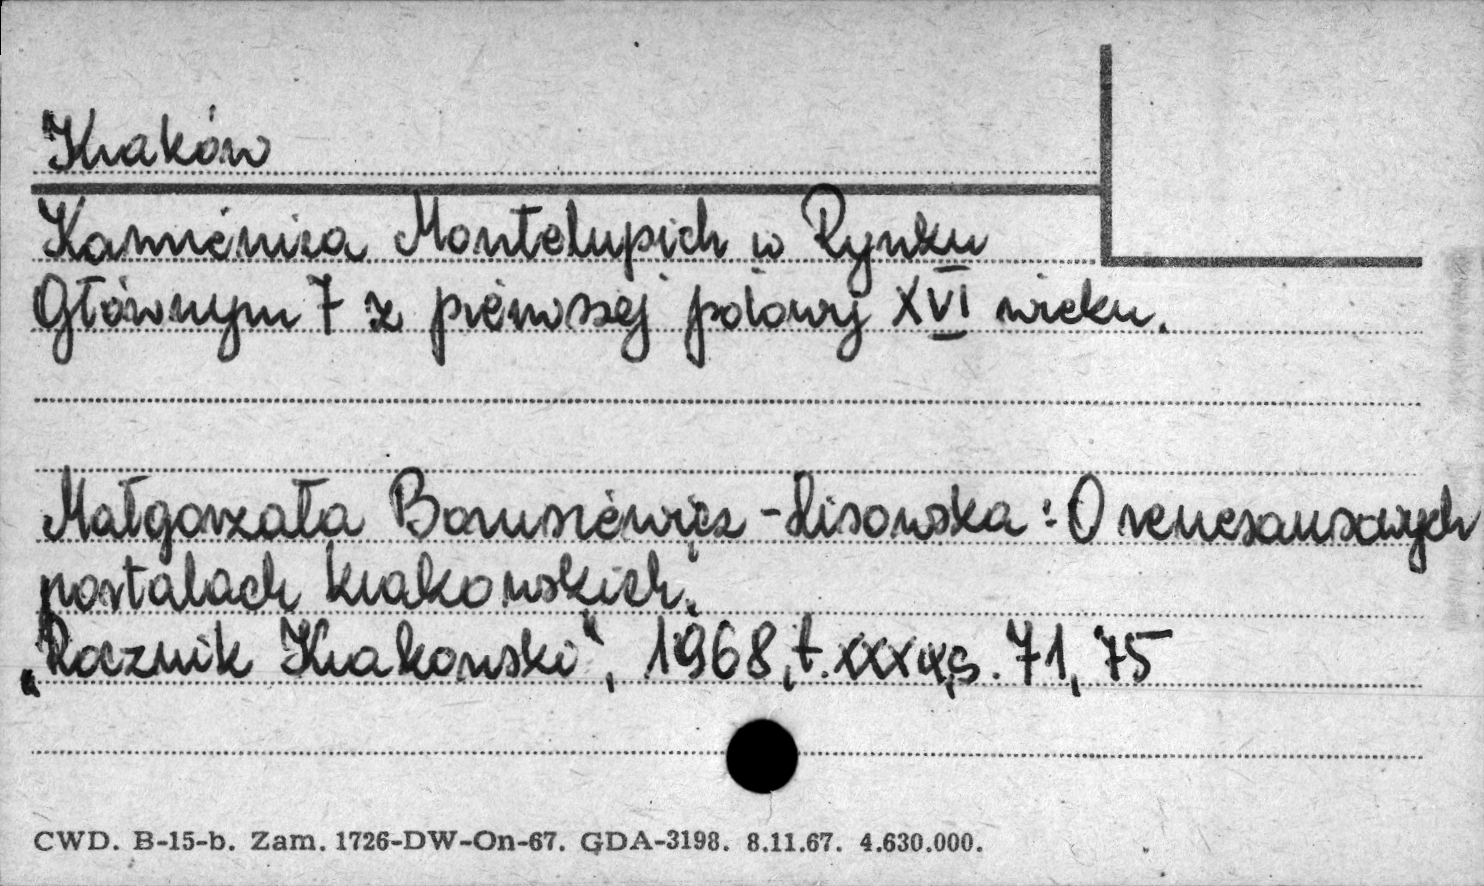 Kraków
Kamienica Montelupich w Rynku
Głównym 7 z pierwszej połowy XVI wieku.
Małgorzata Borusiewicz-Lisowska: O renesansowych
portalach krakowskich.
„Rocznik Krakowski", 1968, t. XXXIX, s. 71, 75
CWD. B-15-b. Zam. 1726-DW-On-67. GDA-3198. 8.11.67. 4.630.000.